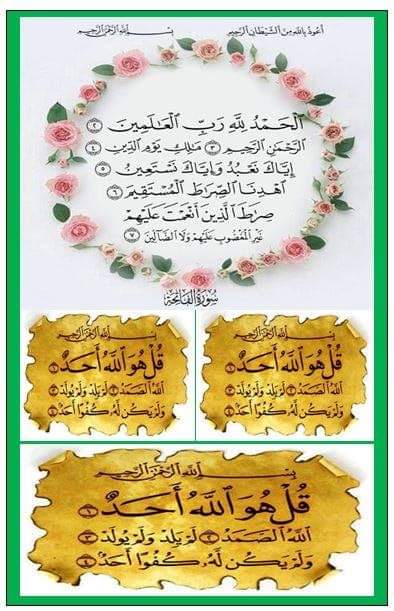 أعوذ بالله من الشيطان الرجيم
بِسْمِ اللَّهِ الرَّحْمَٰنِ الرَّحِيمِ
الْحَمْدُ لِلَّهِ رَبِّ الْعَالَمِينَ ٢
الرَّحْمَٰنِ الرَّحِيمِ ٣ مَالِكِ يَوْمِ الدِّينِ ٤
إِيَّاكَ نَعْبُدُ وَإِيَّاكَ نَسْتَعِينُ ٥
اهْدِنَا الصِّرَاطَ الْمُسْتَقِيمَ ٦
صِرَاطَ الَّذِينَ أَنْعَمْتَ عَلَيْهِمْ
غَيْرِ الْمَغْضُوبِ عَلَيْهِمْ وَلَا الضَّالِّينَ ٧
سُورَةُ الْفَاتِحَةِ
بِسْمِ اللَّهِ الرَّحْمَٰنِ الرَّحِيمِ
قُلْ هُوَ اللَّهُ أَحَدٌ ١
اللَّهُ الصَّمَدُ ٢ لَمْ يَلِدْ وَلَمْ يُولَدْ ٣
وَلَمْ يَكُن لَّهُ كُفُوًا أَحَدٌ ٤
بِسْمِ اللَّهِ الرَّحْمَٰنِ الرَّحِيمِ
قُلْ هُوَ اللَّهُ أَحَدٌ ١
اللَّهُ الصَّمَدُ ٢ لَمْ يَلِدْ وَلَمْ يُولَدْ ٣
وَلَمْ يَكُن لَّهُ كُفُوًا أَحَدٌ ٤
بِسْمِ اللَّهِ الرَّحْمَٰنِ الرَّحِيمِ
قُلْ هُوَ اللَّهُ أَحَدٌ ١
اللَّهُ الصَّمَدُ ٢ لَمْ يَلِدْ وَلَمْ يُولَدْ ٣
وَلَمْ يَكُن لَّهُ كُفُوًا أَحَدٌ ٤